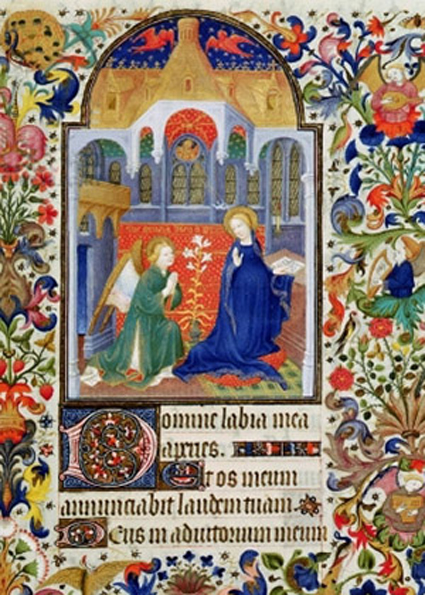 Domine labia mea
aperies.
Et os meum
annunciabit laudem tuam.
Deus in adiutorium meum